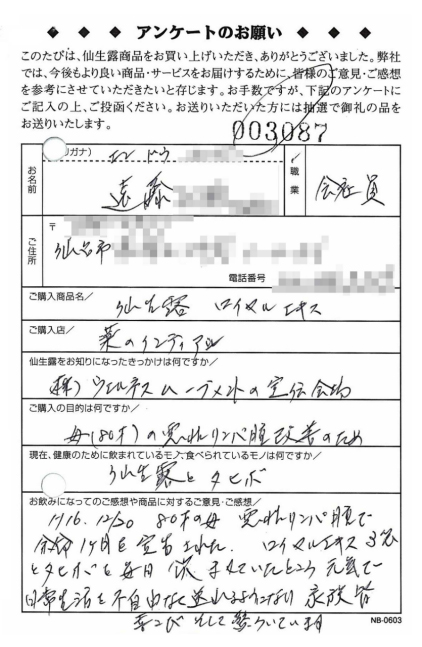 ◆ ◆ ◆ アンケートのお願い ◆ ◆ ◆
このたびは、仙生露商品をお買い上げいただき、ありがとうございました。弊社
では、今後もより良い商品・サービスをお届けするために、皆様のご意見・ご感想
を参考にさせていただきたいと存じます。お手数ですが、下記のアンケートに
ご記入の上、ご投函ください。お送りいただいた方には抽選で御礼の品を
お送りいたします。
003087
リガナ) エンドウ
お名前 遠藤
職業 会社員
〒
ご住所 仙台市
電話番号
ご購入商品名/ 仙生露 ロイヤルエキス
ご購入店/ 薬のインディアル
仙生露をお知りになったきっかけは何ですか/
(株)ウエルネスムーブメントの宣伝会場
ご購入の目的は何ですか/
母(80才)の悪性リンパ腫改善のため
現在、健康のために飲まれているモノ、食べられているモノは何ですか/
仙生露とタヒボ
お飲みになってのご感想や商品に対するご意見・ご感想/
H16. 12/30 80才の母 悪性リンパ腫で
余命1ヶ月と宣告された. ロイヤルエキス3袋
とタヒボを毎日 飲ませていたところ 元気で
日常生活を不自由なく送れるようになり 家族皆
喜こび そして驚ろいています
NB-0603